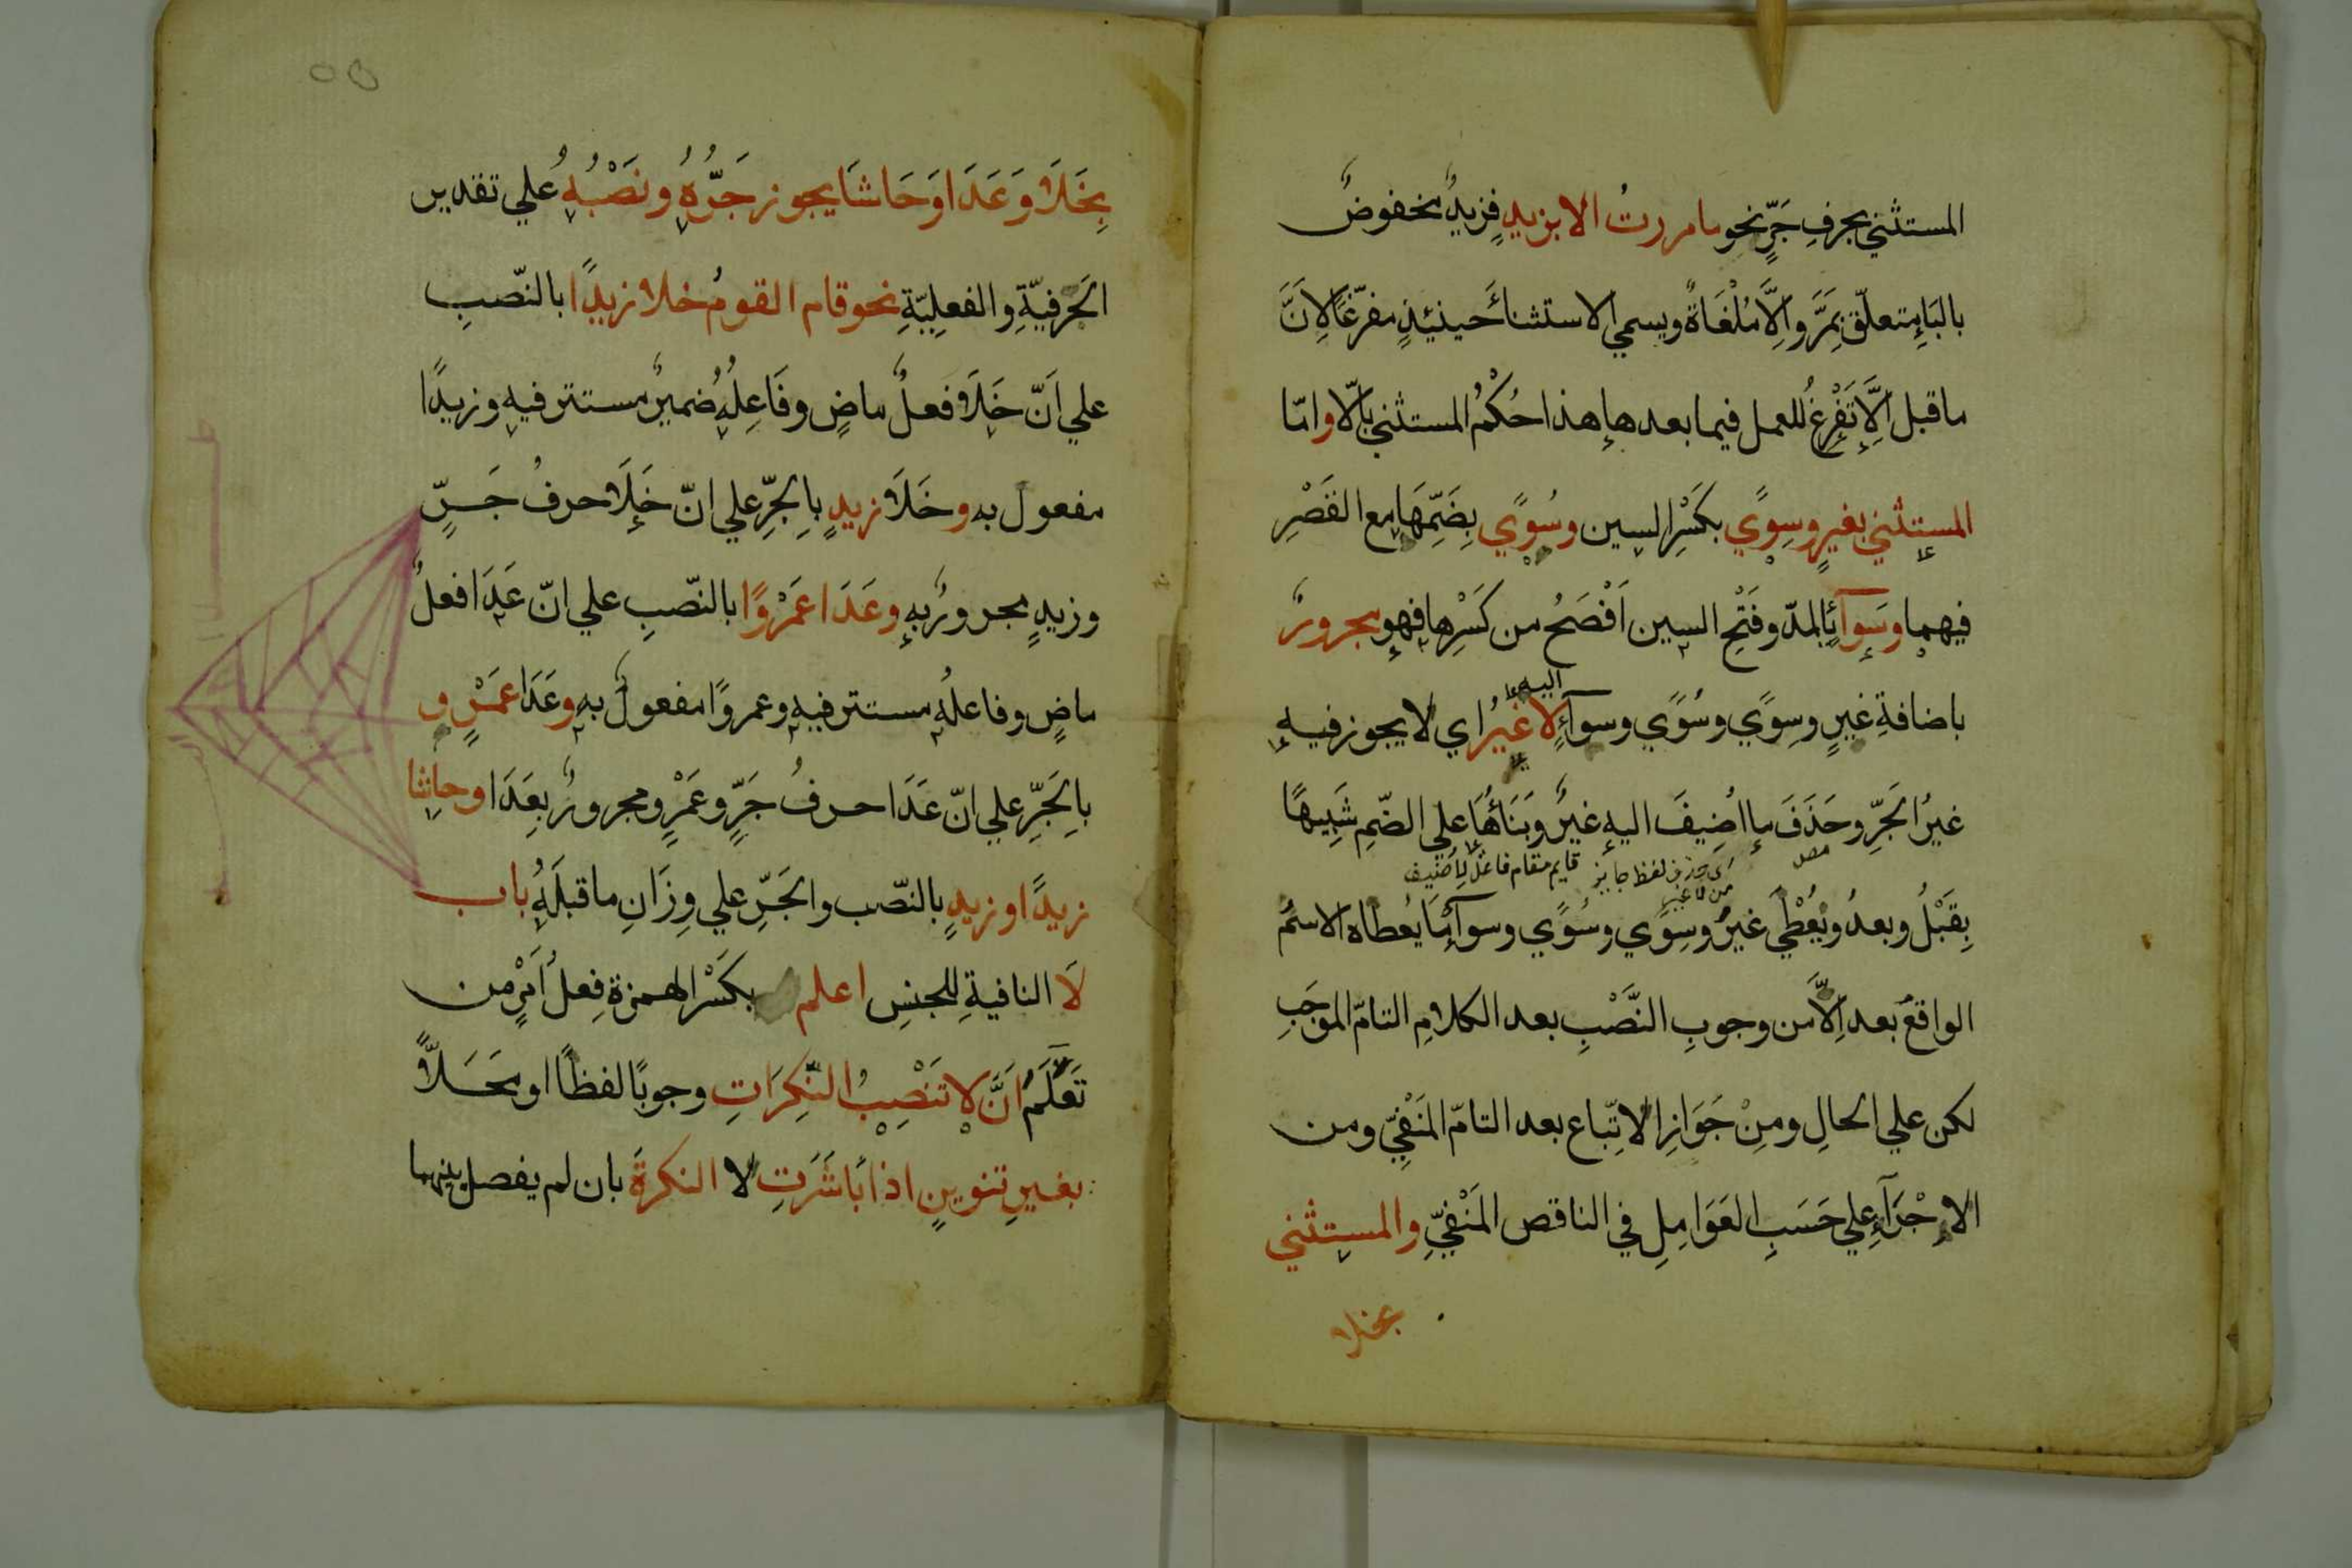 المستثني بحرفِ جَرٍّ نحو ما مررتُ الا بزيدٍ فزيدٌ مخفوضٌ
بالبَاءِ متعلّق بِمَرَّ وَاِلَّا مُلْغَاةٌ ويسمي الاستثناءَ حينئذٍ مفرّغًا لِاَنَّ
ما قبل اِلَّا تَفْرِغُ للعمل فيما بعدها هذا حُكْمُ المستثني بِاِلّا وامّا
المستثني بغيرٍ وسِوًي بكَسْرِ السين وسُوًي بِضَمِّهَا مع القَصْرِ
فيهما وسَوآءٍ بالمدّ وفَتْحِ السين اَفْصَحُ من كَسْرِها فهو مجرورٌ
اليه
باضافةِ غيرٍ وسِوًي وسُوًي وسوآءٍ لا غيرُ اي لا يجوز فيه
غيرُ الجَرِّ وحَذَفَ ما اُضِيفَ اليه غيرٌ وبَنَاؤُهَا علي الضّمِ شَبِيهًا
اي حذف لفظ جايز قايم مقام فاعل لِاُضيف
بِقَبْلُ وبعدُ ويُعْطَي غيرٌ وسِوًي وسُوًي وسوآءٌ مَا يُعطاه الاسْمُ
الواقعُ بعد اِلَّا من وجوبِ النَّصْبِ بعد الكلامِ التامّ الموجَبِ
لكن علي الحالِ ومِنْ جَوَازِ الاِتّباع بعد التامّ المَنْفِيِّ ومن
الاِجْرَآءِ علي حَسَبِ العَوَامِلِ في الناقص المَنْفِيِّ والمستثني
بخلا
بِخَلَا وَعَدَا وَحَاشَا يجوز جَرُّهُ ونَصْبُهُ علي تقدير
الحَرفيّةِ والفعلِيّةِ نحو قام القومُ خلا زيدًا بالنّصبِ
علي اَنّ خَلَا فعلٌ ماضٍ وفَاعِلُهُ ضميرٌ مستتر فيه وزيدًا
مفعول به وخَلَا زيدٍ بِالجرِّ علي انّ خَلَا حرفُ جَرٍّ
وزيدٍ مجرورٌ به وعَدَا عَمْرًوا بالنّصبِ علي انّ عَدَا فعلٌ
ماضٍ وفاعلُه مستتر فيه وعمروًا مفعولٌ به وعَدَا عَمْرٍو
بِالجَرِّ علي انّ عَدَا حرفُ جَرٍّ وعَمْرٍو مجرورٌ بِعَدَا وحاشا
زيدًا وزيدٍ بالنّصب والجَرِّ علي وِزَانِ ما قبلَهُ باب
لَا النافيةِ للجنسِ اعلم بكَسْر الهمزة فِعلُ اَمْرٍ من
تَعَلَّمُ اَنَّ لا تَنْصِبُ النّكِرَاتِ وجوبًا لفظًا او مَحَلًّا
بغيرِ تنوينٍ اذا بَاشَرَتِ لا النكرةَ بان لم يفصل بينهما